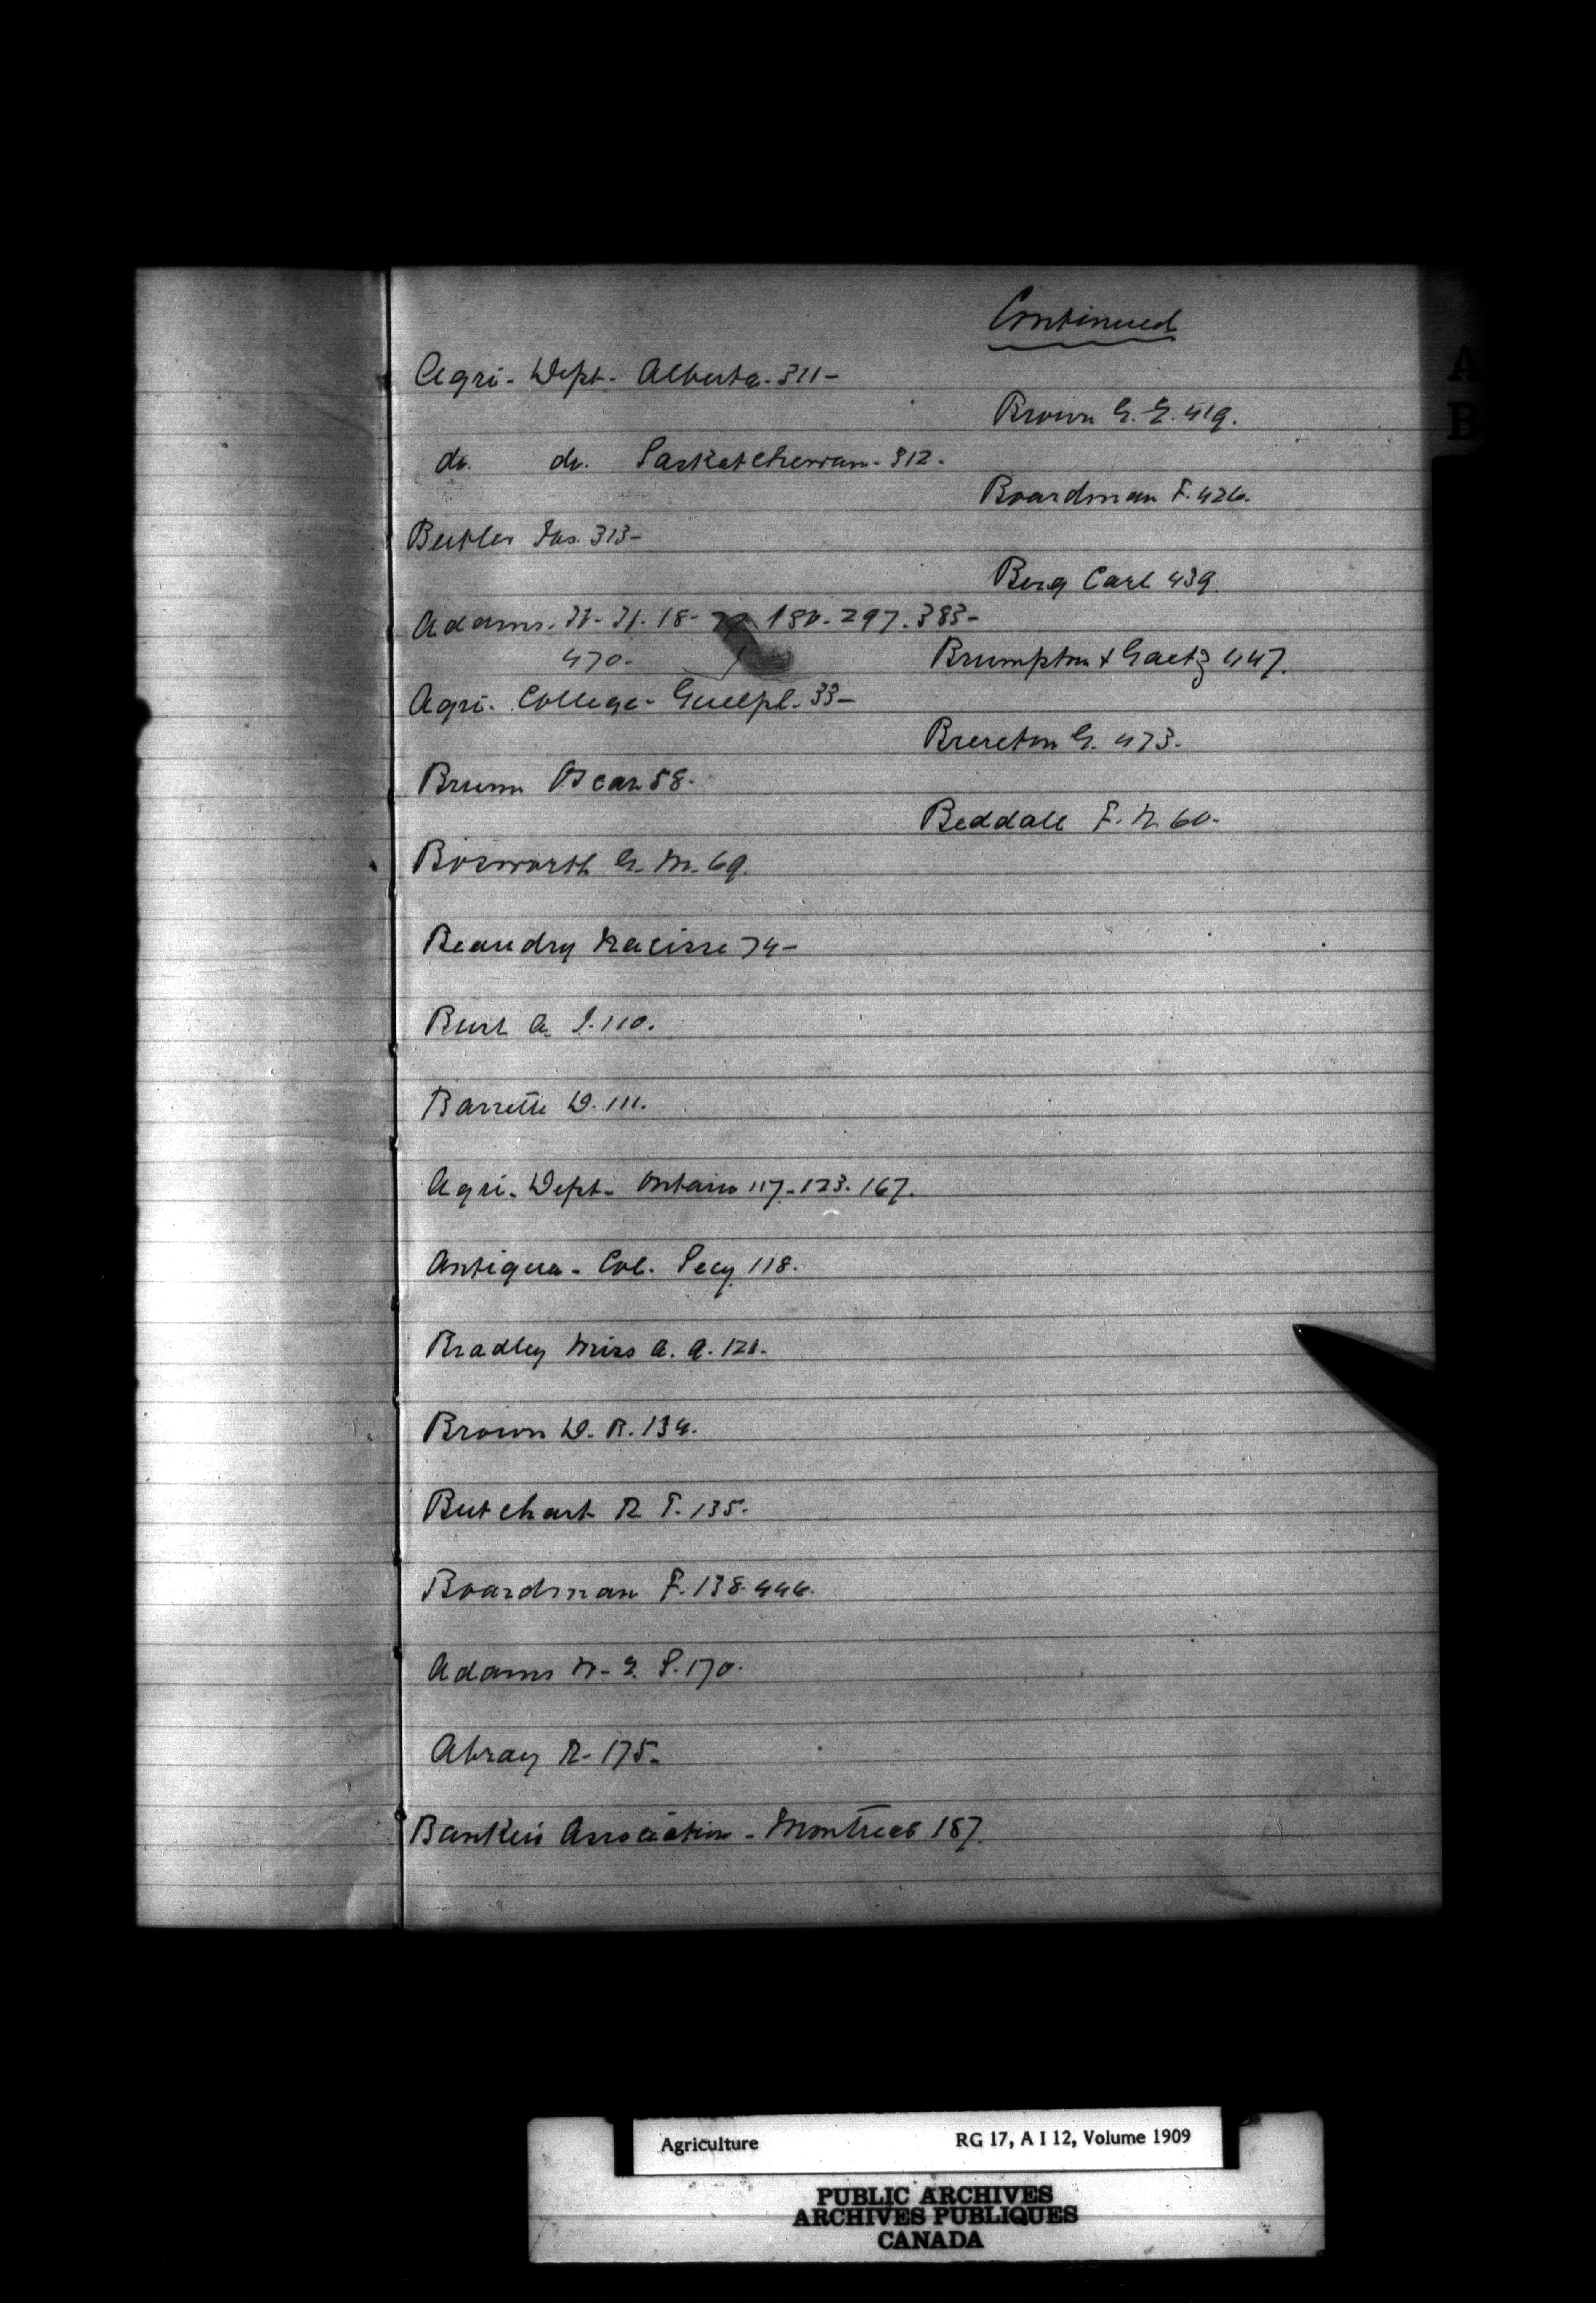 Continued
Agri- Dept- Alberta- 311-
do. do. Saskatchewan- 312-
Butler Jas. 313-
Adams. 18- 180- 297- 383-
470-
Agri- College- Guelph- 33-
Brunn Oscar 58-
Bosworth G. M. 69.
Beaudry Nacisse 74-
Burt A. J. 110.
Barrette D. 111.
Agri- Dept- Ontario 117- 123- 167.
Antigua- Col. Secy 118.
Bradley Miss A. A. 121.
Brown D. R. 134.
Butchart R. T. 135-
Boardman F. 138. 446.
Adams 170.
Abray R- 175-
Bankers Association- Montreal 187
Brown G. E. 419.
Boardman F. 426.
Berg Carl 439.
Brumpton & Gaetz 447.
Brereton G. 473.
Beddall F. N. 60-
A
B
Agriculture RG 17, A I 12, Volume 1909
PUBLIC ARCHIVES
ARCHIVES PUBLIQUES
CANADA